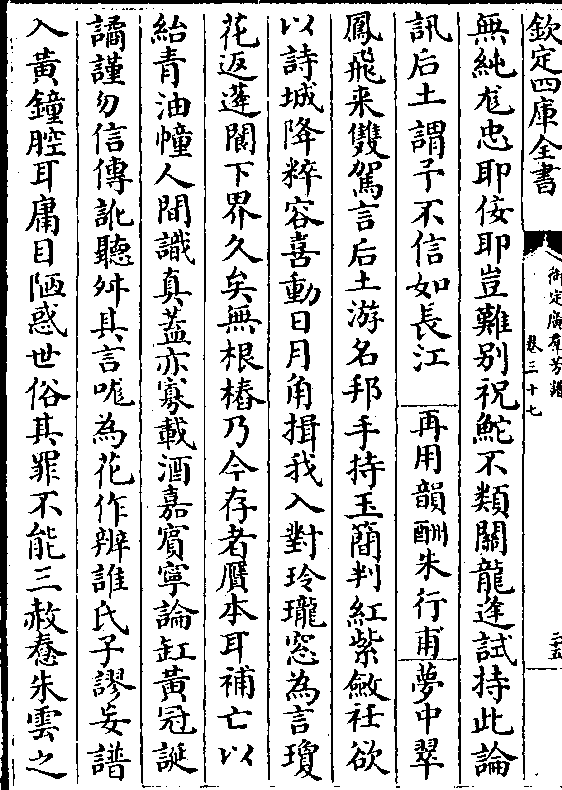 欽定四庫全書
御定廣羣芳譜
卷三十七
三五
無純尨忠耶佞耶豈難别祝鮀不類關龍逢試持此論
訊后土謂予不信如長江 再用韻酬朱行甫 夢中翠
鳳飛来雙駕言后土游名邦手持玉簡判紅紫斂衽欲
以詩城降粹容喜動日月角揖我入對玲瓏窓為言瓊
花返蓬閬下界久矣無根樁乃今存者贋本耳補亡以
紿青油幢人間識真葢亦寡載酒嘉賓寧論缸黄冠誕
譎謹勿信傳訛聽舛其言哤為花作辨誰氏子謬妄譜
入黄鐘腔耳庸目陋惑世俗其罪不能三赦惷朱雲之